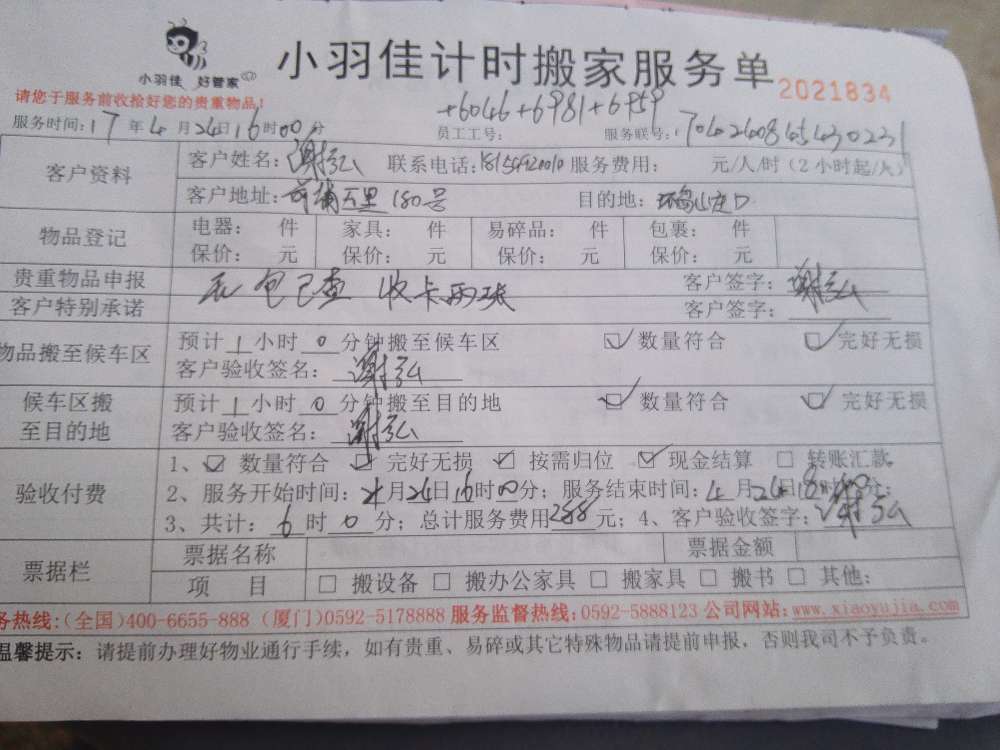 小羽佳 好管家
小羽佳计时搬家服务单
2021834
请您于服务前收拾好您的贵重物品！
+6046+6981+6959
服务时间：17年4月24日16时00分 员工工号： 服务联号：
客户资料
客户姓名：谢弘 联系电话： 服务费用： 元/人/时（2小时起/人）
客户地址：前埔五里180号 目的地：
物品登记
电器： 件 家具： 件 易碎品： 件 包裹： 件
保价： 元 保价： 元 保价： 元 保价： 元
贵重物品申报 无 包已查 收卡两张 客户签字：谢弘
客户特别承诺 客户签字：
物品搬至候车区
预计1小时0分钟搬至候车区 数量符合 完好无损
客户验收签名：谢弘
候车区搬至目的地
预计1小时0分钟搬至目的地 数量符合 完好无损
客户验收签名：谢弘
验收付费
1、数量符合 完好无损 按需归位 现金结算 转账汇款。
2、服务开始时间：4月24日16时00分；服务结束时间：4月24日18时00分；
3、共计：6时0分；总计服务费用288元；4、客户验收签字：谢弘
票据栏
票据名称 票据金额
项 目 搬设备 搬办公家具 搬家具 搬书 其他：
务热线：（全国）400-6655-888（厦门）0592-5178888 服务监督热线：0592-5888123 公司网站：www.xiaoyujia.com
温馨提示：请提前办理好物业通行手续，如有贵重、易碎或其它特殊物品请提前申报，否则我司不予负责。